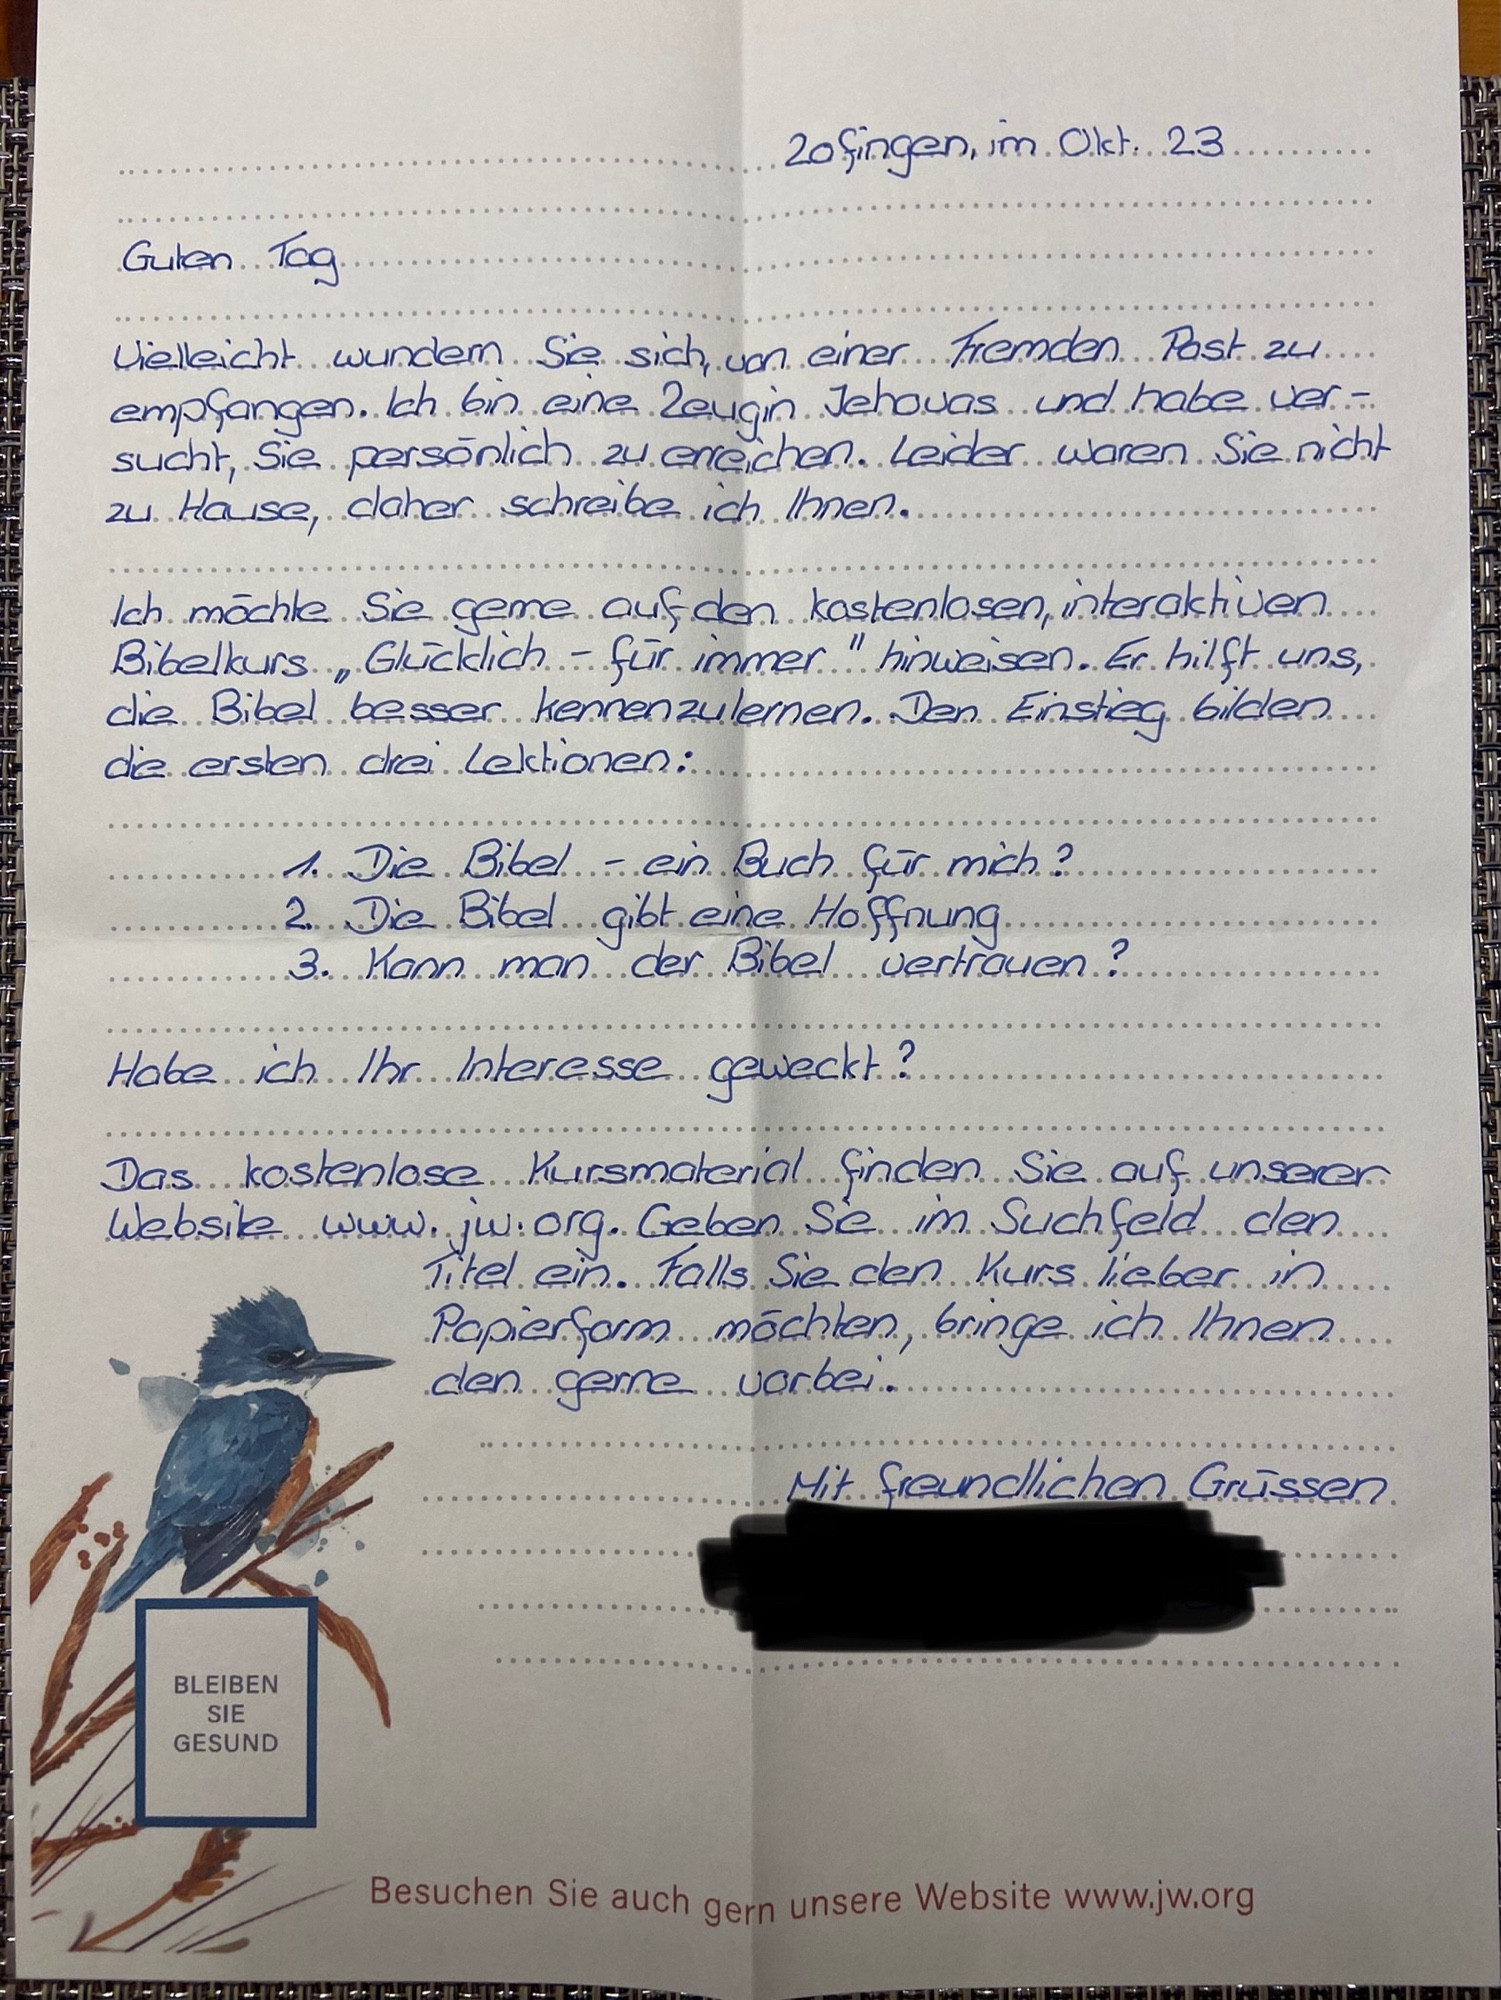 Zofingen, im Okt. 23
Guten Tag
Vielleicht wundern Sie sich, von einer Fremden Post zu
empfangen. Ich bin eine Zeugin Jehovas und habe ver-
sucht, Sie persönlich zu erreichen. Leider waren Sie nicht
zu Hause, daher schreibe ich Ihnen.
Ich möchte Sie gerne auf den kostenlosen, interaktiven
Bibelkurs „Glücklich - für immer" hinweisen. Er hilft uns,
die Bibel besser kennenzulernen. Den Einstieg bilden
die ersten drei Lektionen:
1. Die Bibel - ein Buch für mich?
2. Die Bibel gibt eine Hoffnung
3. Kann man der Bibel vertrauen?
Habe ich Ihr Interesse geweckt?
Das kostenlose Kursmaterial finden Sie auf unserer
Website www.jw.org. Geben Sie im Suchfeld den
Titel ein. Falls Sie den Kurs lieber in
Papierform möchten, bringe ich Ihnen
den gerne vorbei.
Mit freundlichen Grüssen
BLEIBEN
SIE
GESUND
Besuchen Sie auch gern unsere Website www.jw.org